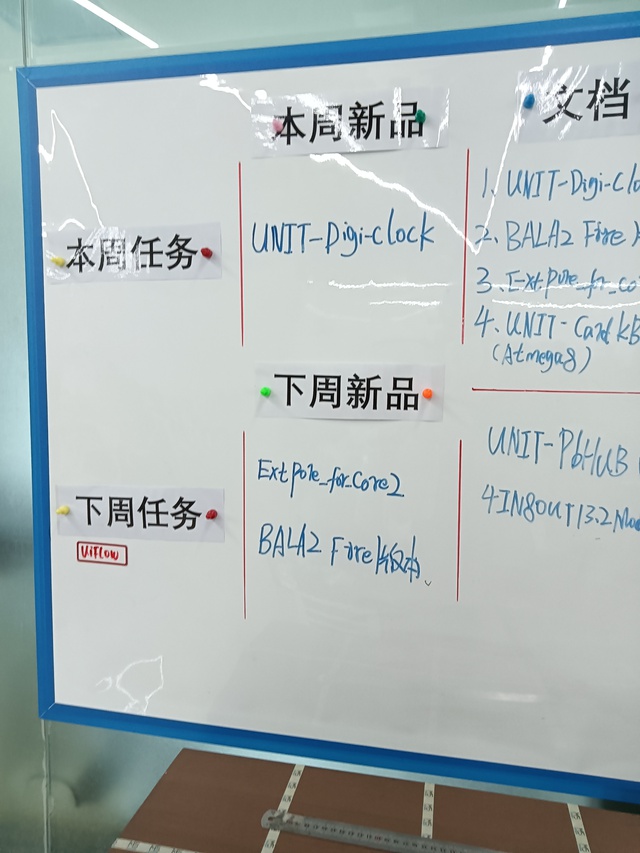 本周新品
文档
本周任务
UNIT-Digi-Clock
1、UNIT-Digi-Clo
2、BALA2 Fire
3、Ext Pore_for_co
4、UNIT-Card KB
(Atmega8)
下周新品
下周任务
UiFlow
Ext Pore_for_Core2
BALA2 Fire版本、
UNIT-PbHUB
4IN8OUT13.2